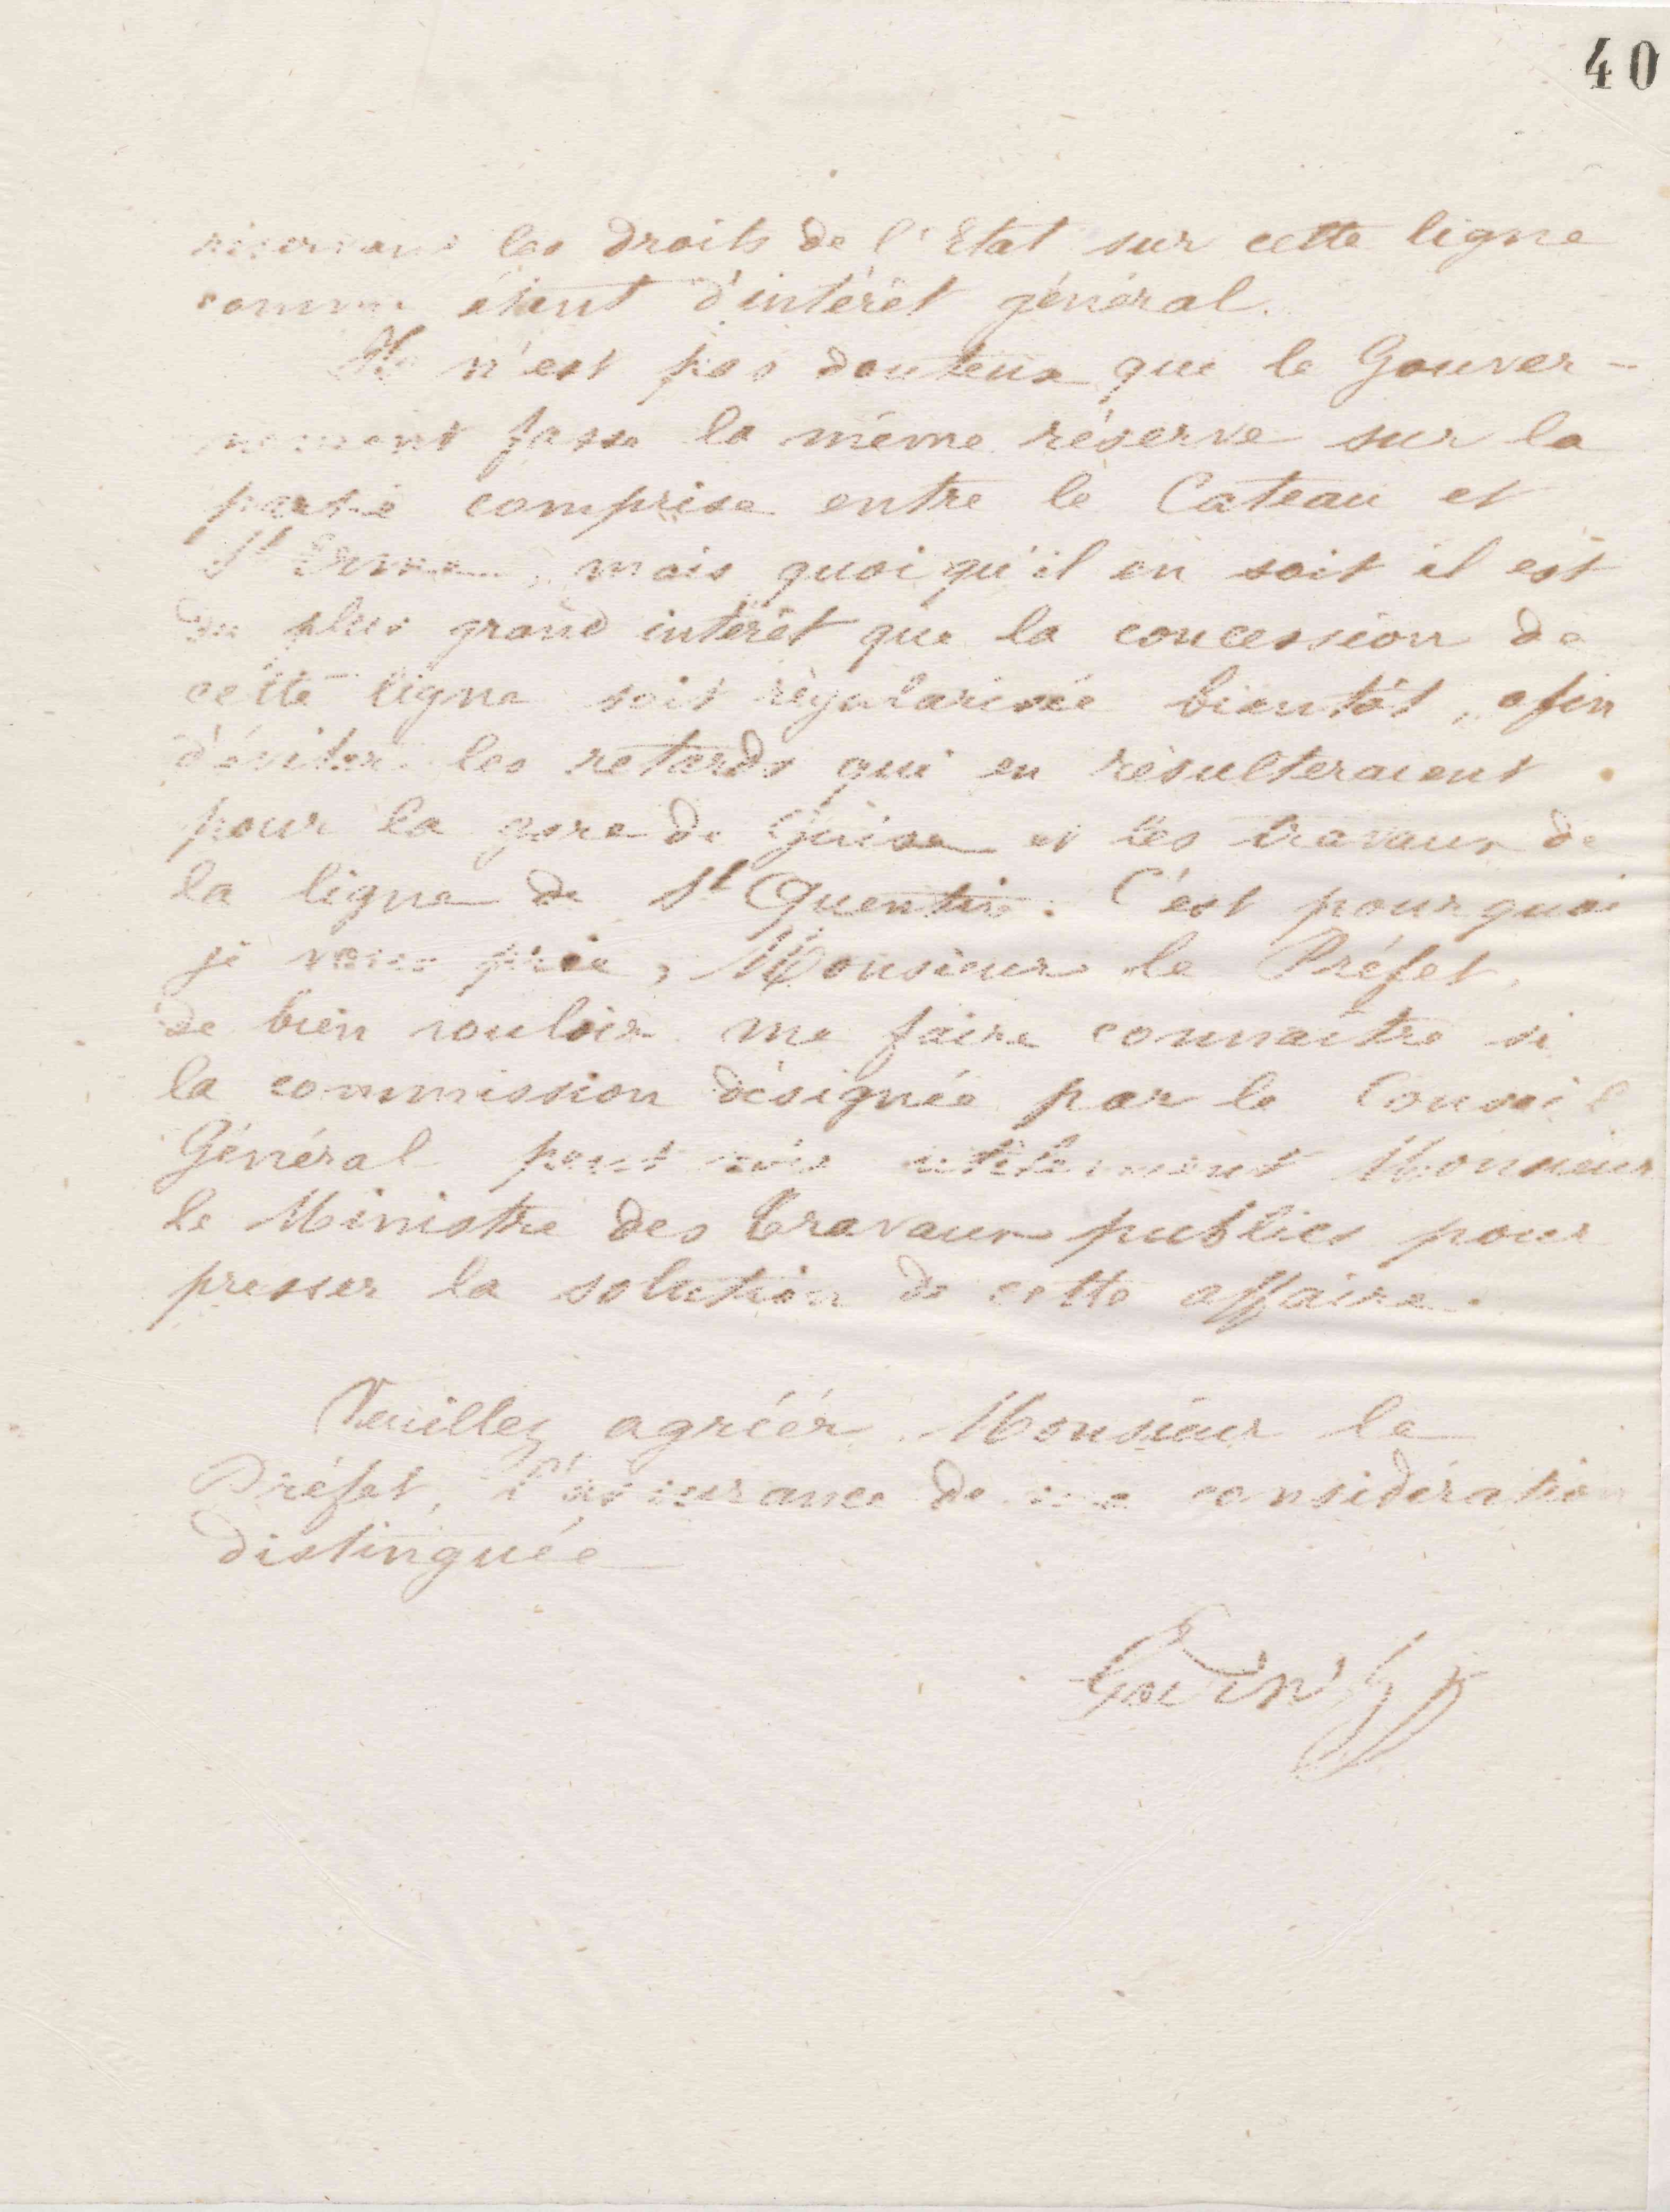 40
réservant les droits de l'Etat sur cette ligne
comme étant d'intérêt général.
Il n'est pas douteux que le Gouver-
nement fasse la même réserve sur la
partie comprise entre le Cateau et
St Erme, mais quoiqu'il en soit il est
du plus grand intérêt que la concession de
cette ligne soit régularisée bientôt, afin
d'éviter les retards qui en résulteraient
pour la gare de Guise et les travaux de
la ligne de St Quentin. C'est pourquoi
je vous prie, Monsieur le Préfet,
de bien vouloir me faire connaître si
la commission désignée par le Conseil
Général peut voir utilement Monsieur
le Ministre des Travaux publics pour
presser la solution de cette affaire.
Veuillez agréér Monsieur le
Préfet, l'assurance de ma considération
distinguée
Godin